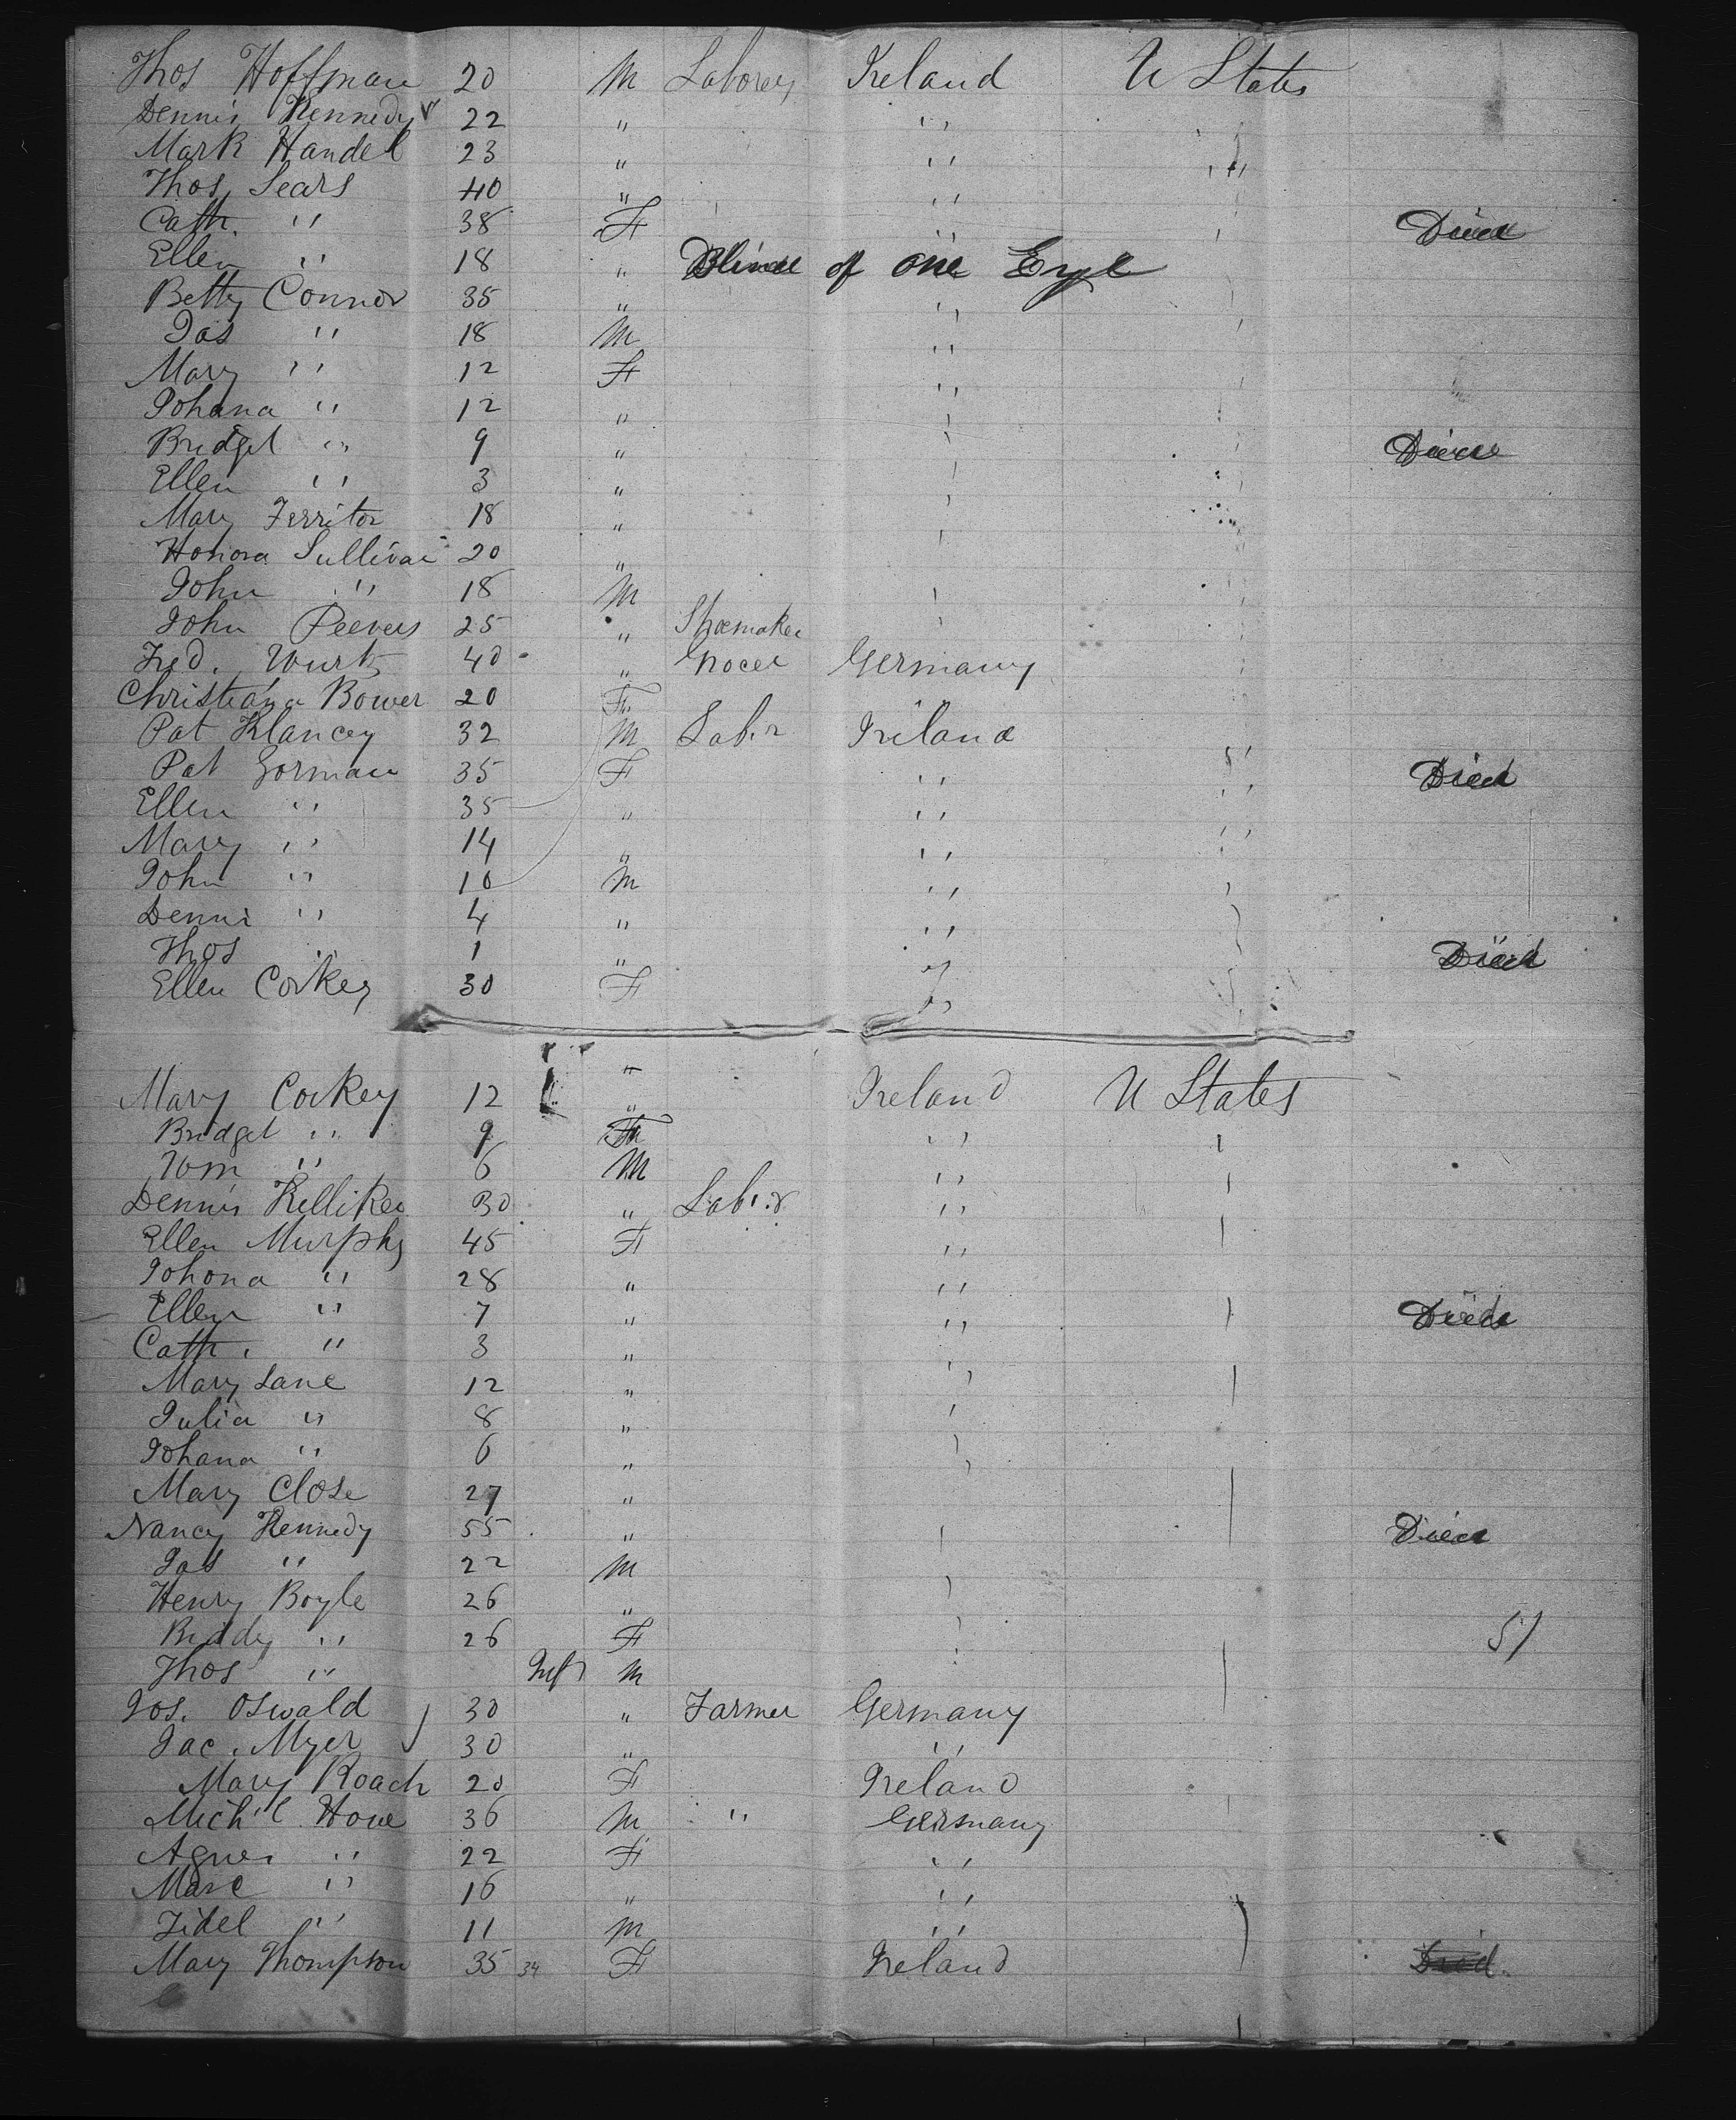 Thos Hoffman 20 M Laborer Ireland U States
Dennis Kennedy 22 " ,,
Mark Handel 23 " ,, ,,
Thos Sears 40 " ,,
Cath. " 38 F ,, Died
Ellen " 18 " Blind of one Eye
Betty Connor 35 " ,,
Jas " 18 M ,,
Mary " 12 F ,,
Johana " 12 "
Bridget " 9 " Died
Ellen " 3 "
Mary Ferritor 18 "
Honora Sullivan 20 "
John " 18 M
John Peevers 25 " Shoemaker
Fred. Wurtz 40 " Grocer Germany
Christiana Bower 20 F
Pat Klancey 32 M Lab.r Ireland
Pat Gorman 35 F ,, Died
Ellen " 35 " ,,
Mary " 14 " ,,
John " 10 M ,,
Dennis " 4 " ,,
Thos " 1 " Died
Ellen Corkey 30 F ,,
Mary Corkey 12 " Ireland U States
Bridget " 9 F ,,
Wm " 6 M ,,
Dennis Kelliker 30 " Lab.r ,,
Ellen Murphy 45 F ,,
Johona " 28 " ,,
Ellen " 7 " ,, Died
Cath. " 3 " ,,
Mary Lane 12 "
Julia " 8 "
Johana " 6 "
Mary Close 27 "
Nancy Kennedy 55 " Died
Jas " 22 M
Henry Boyle 26 "
Biddy " 26 F 51
Thos " Inft M
Jos. Oswald 30 " Farmer Germany
Jac. Myer 30 " ,,
Mary Roach 20 F Ireland
Mich'l Howe 36 M " Germany
Agnes " 22 F ,,
Marc " 16 " ,,
Fidel " 11 M ,,
Mary Thompson 35 34 F Ireland Died.